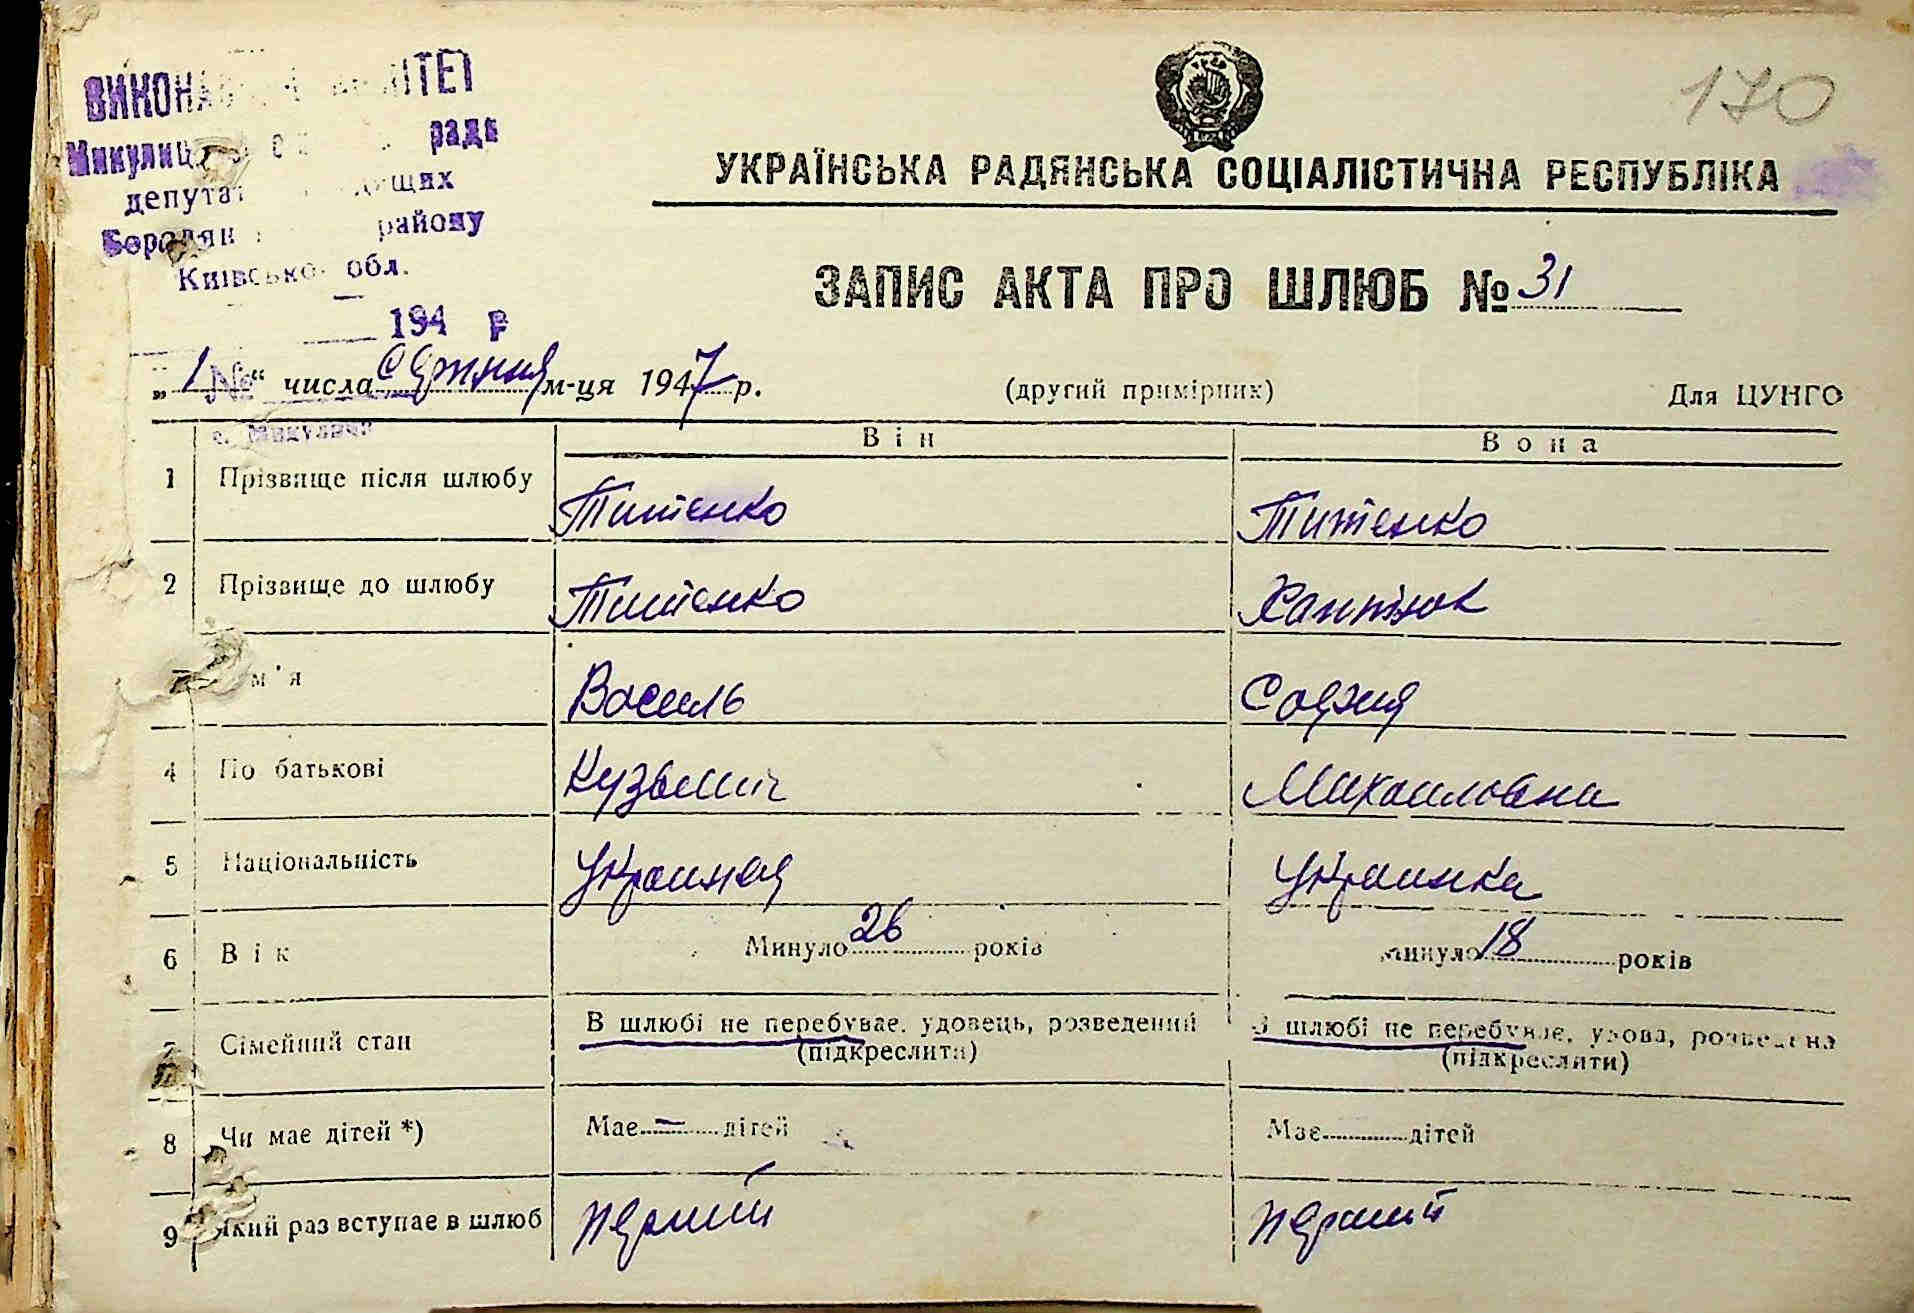 170
ВИКОНАВЧИЙ КОМІТЕТ
Микулиц ради
депутат трудящих
Бородян району
Київської обл.
194 р
УКРАЇНСЬКА РАДЯНСЬКА СОЦІАЛІСТИЧНА РЕСПУБЛІКА
ЗАПИС АКТА ПРО ШЛЮБ № 31
„ 1 “ числа серпня м-ця 1947 р. (другий примірник) Для ЦУНГО
№
с. Микуличі
Він Вона
1 Прізвище після шлюбу Титенко Титенко
2 Прізвище до шлюбу Титенко
м'я Василь София
4 По батькові Кузьмич Михаиловна
5 Національність Украинец Украинка
6 Вік Минуло 26 років Минуло 18 років
7 Сімейний стан В шлюбі не перебуває, удовець, розведений В шлюбі не перебуває, удова, розведена
(підкреслити) (підкреслити)
8 Чи має дітей *) Має — дітей Має дітей
9 Який раз вступає в шлюб перший перший